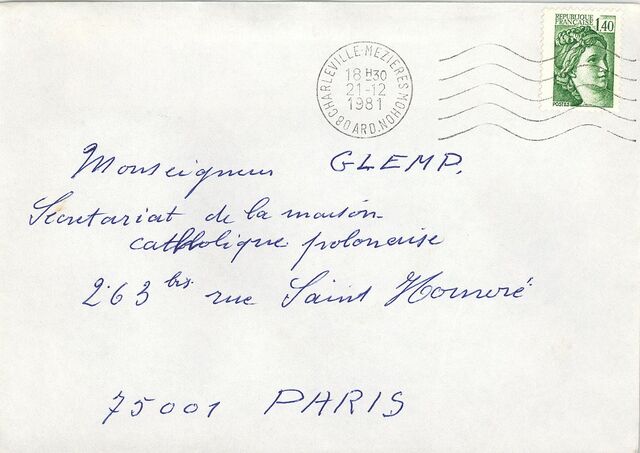 REPUBLIQUE
FRANÇAISE
1,40
POSTES
CHARLEVILLE-MEZIERES-MOHON
18H30
21-12
1981
08 ARD.
Monseigneur GLEMP.
Secretariat de la maison
catholique polonaise
263 bis rue Saint Honoré
75001 PARIS